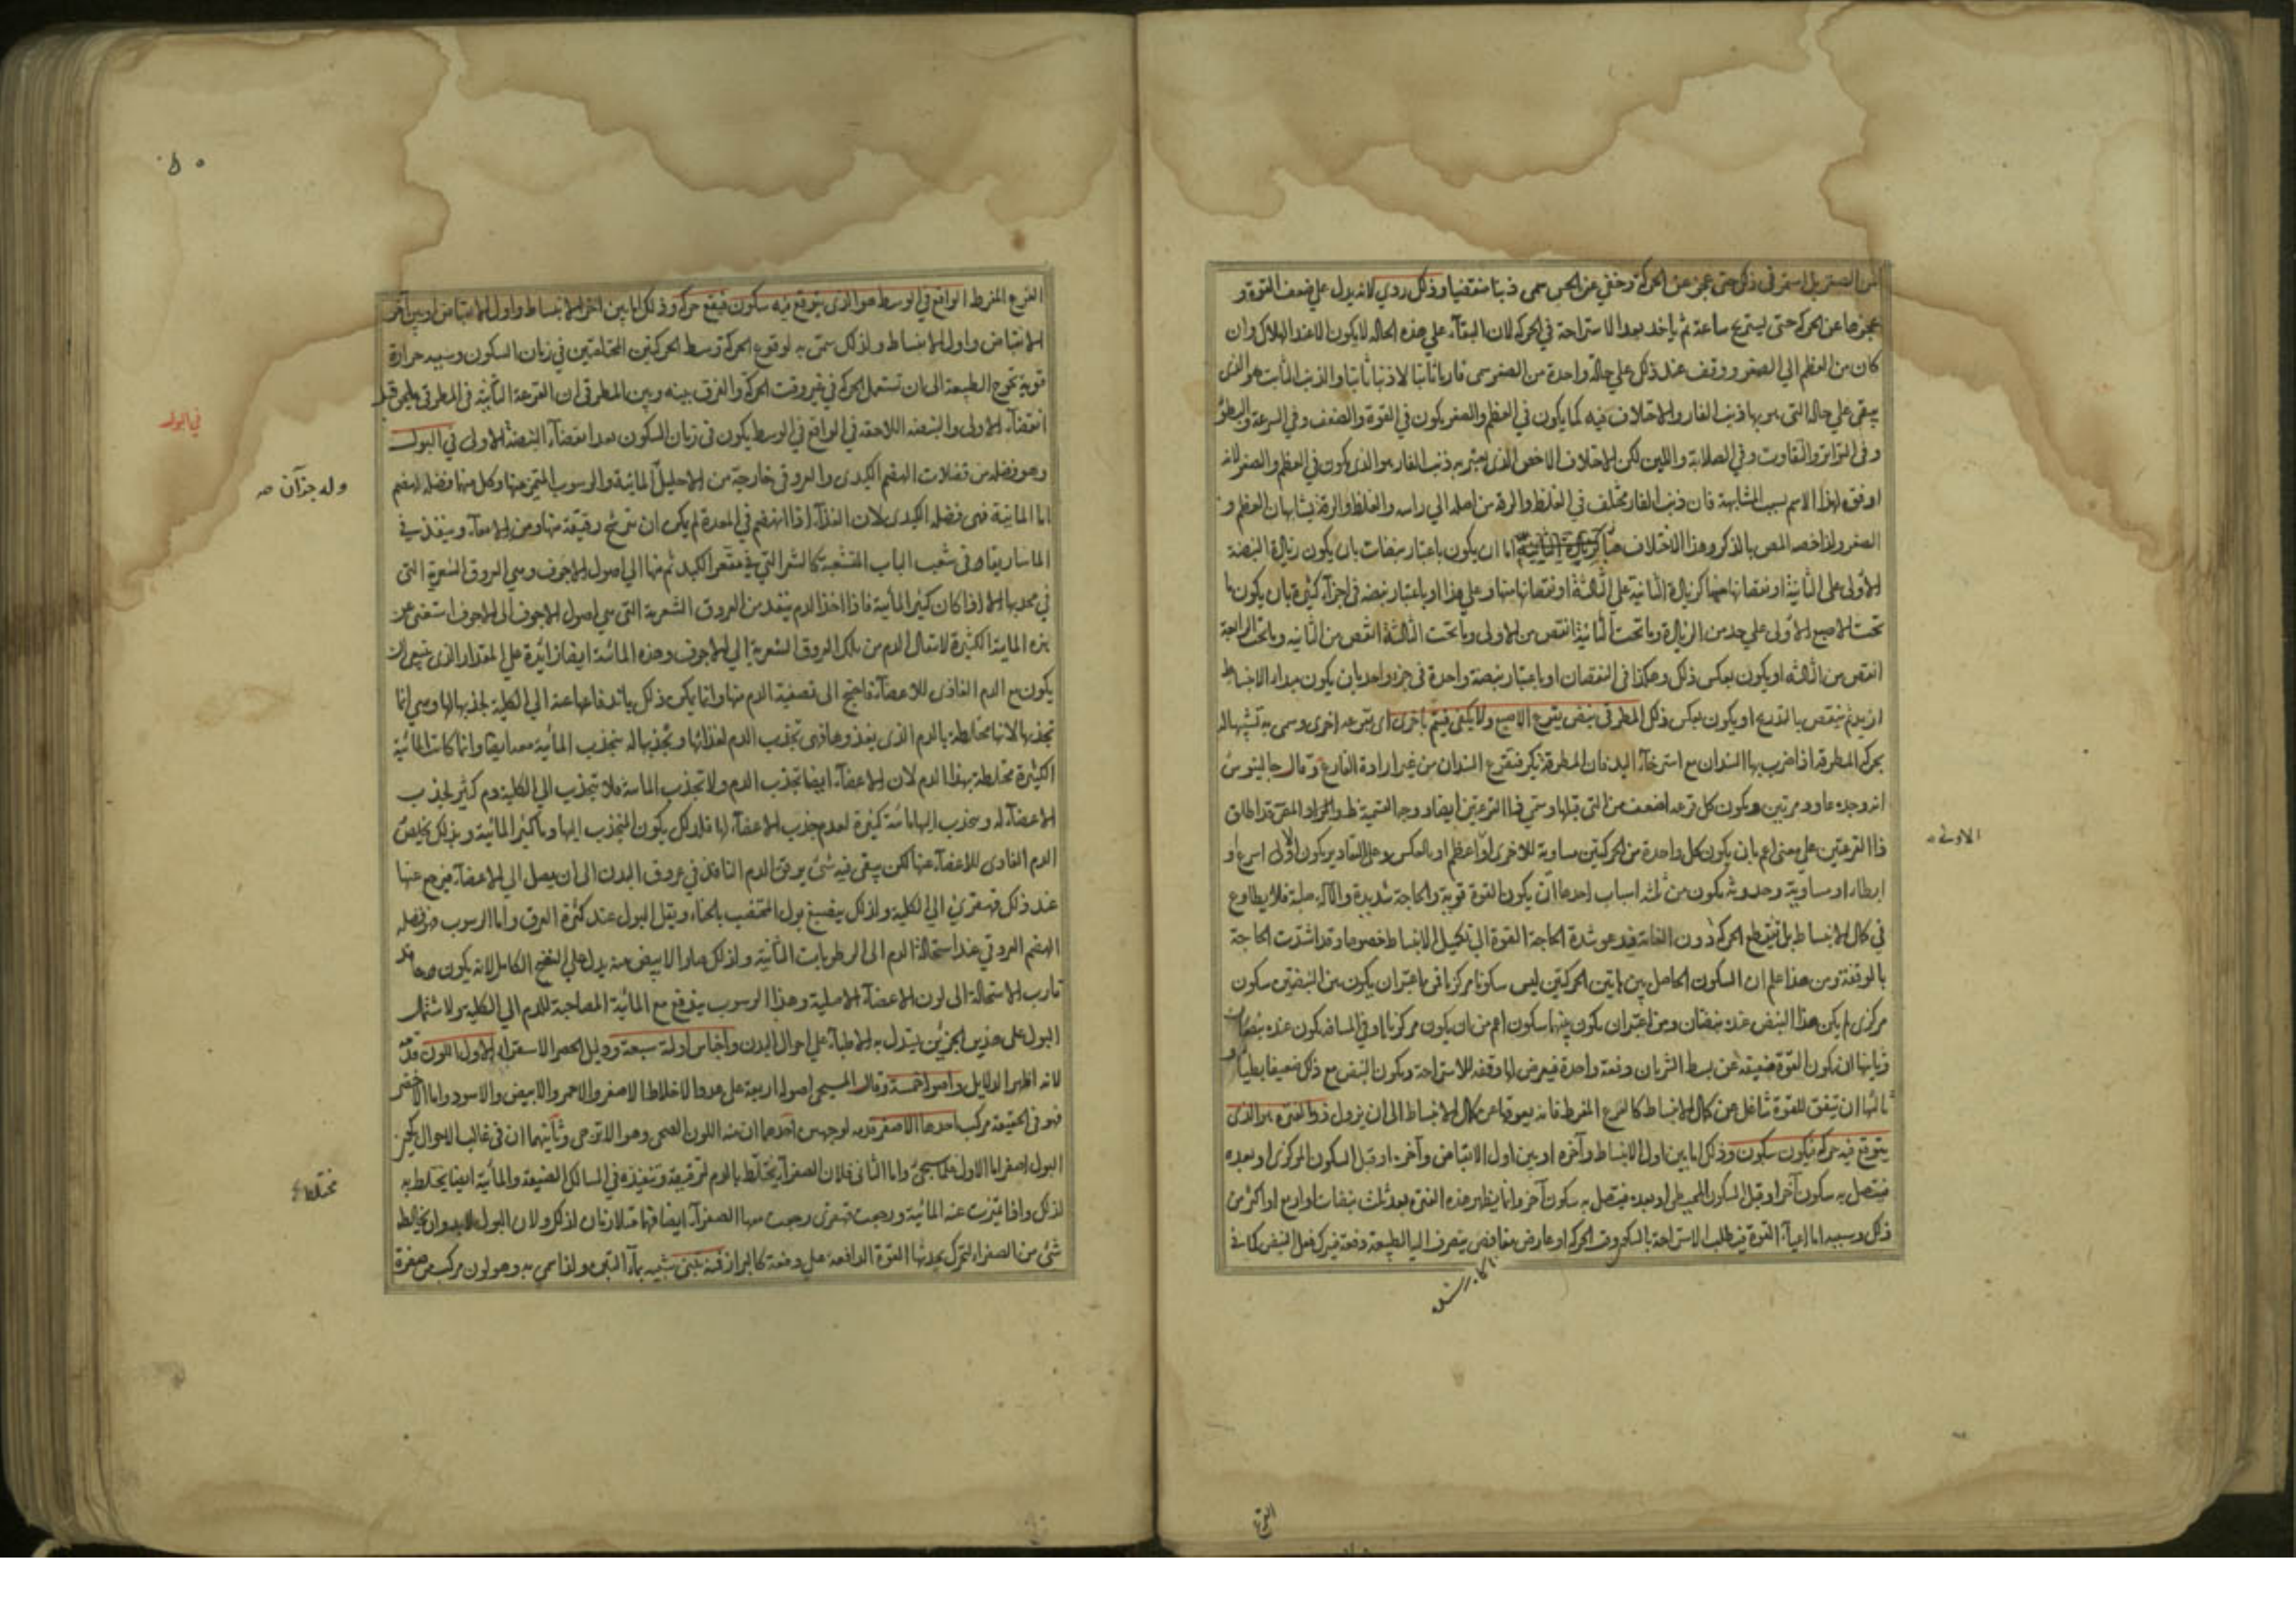 الصغر بل استمر في ذلك حتى عجز عن الحركة وخفي عن الحس سمى ذنبا منقضيا وذلك ردي لانه يدل على ضعف القوة و
عجزها عن الحركة حتى يستريح ساعة ثم يأخذ بعد الاستراحة في الحركة لان البقاء على هذه الحاله لا يكون الا عند الهلاك وان
كان من العظم الى الصغر ووقف عند ذلك على حالة واحدة من الصغر سمى ثابتا والذنب الثابت هو الذي
يبقى على حاله التي هو بها ذنب الفار والاختلاف فيه كما يكون في العظم والصغر يكون في القوة والضعف وفي السرعة والبطؤ
وفي التواتر والتفاوت وفي الصلابة واللين لكن الاختلاف الاخص الذي يعتبر به ذنب الفار هو الذي يكون في العظم والصغر لانه
اوفق لهذا الاسم بسبب المشابهة فان ذنب الفار مختلف في الغلظ والرقة من اصله الى راسه والغلظ والرقة يشابهان العظم و
الصغر ولذا خصه المص بالذكر وهذا الاختلاف اما ان يكون باعتبار نبضات بان يكون زيادة النبضة
الاولى على الثانية او نقصانها عنها كزيادة الثانية على الثالثة او نقصانها عنها وعلى هذا او باعتبار نبضه في اجزآء كثيرة بان يكون ما
تحت الاصبع الاولى على حد من الزيادة وما تحت الثانية انقص من الاولى وما تحت الثالثة انقص من الثانيه وما تحت الرابعة
انقص من الثالثه او يكون بعكس ذلك وهكذا في النقصان او باعتبار نبضة واحدة في جزء واحد بان يكون مبداء الانبساط
ازيد ثم ينقص بالتدريج او يكون بعكس ذلك المطرقي نبض يقرع الاصبع ولا يكتفي فيتم باخرى اي بقرعه اخرى وسمى به تشبيها له
بحركة المطرقه اذا ضرب بها السندان مع استرخآء اليد فان المطرقة تكر فتقرع السندان من غير ارادة القارع وقال جالينوس
انه وجده عاود مرتين ويكون كل قرعه اضعف من التي قبلها وسمي ذا القرعتين ايضا ووجه التسمية ظ والمراد المص قد اطلق
ذا القرعتين على معنى اعم بان يكون كل واحدة من الحركتين مساوية للاخرى او اعظم او بالعكس وعلى التقادير يكون الاولى اسرع او
ابطاء او مساوية وحدوثه يكون من ثلثه اسباب احدها ان يكون القوة قوية والحاجة شديدة والآلة صلبة فلا يطاوع
في كمال الانبساط بل يقطع الحركة دون الغاية فيدعو شدة الحاجة القوة الى تكميل الانبساط خصوصا وقد اشتدت الحاجة
بالوقفة ومن هذا علم ان السكون الحاصل بين هاتين الحركتين ليس سكونا مركزيا فمن اعتبر ان يكون بين النبضتين سكون
مركزي لم يكن هذا النبض عنده نبضتان ومن اعتبر ان يكون بينهما سكون اعم من ان يكون مركزيا او في المسافة يكون عنده نبضتان
وثانيها ان يكون القوة ضعيفه عن بسط الشريان دفعة واحدة فيعرض لها وقفه للاستراحة ويكون النبض مع ذلك ضعيفا بطيئا
ثالثها ان يتفق للقوة شاغل عن كمال الانبساط كالفزع المفرط فانه يعوقها عن كمال الانبساط الى ان يزول ذو الفتره هو الذي
يتوقع فيه حركه فيكون سكون وذلك اما بين اول الانبساط وآخره او بين اول الانقباض وآخره او قبل السكون المركزي او بعده
فيتصل به سكون آخر او قبل السكون المحيطي او بعده فيتصل به سكون آخر وانما يظهر هذه الفترة بعد ثلث نبضات او اربع او اكثر من
ذلك وسببه اما اعيآء القوة فيطلب الاستراحة بالسكون وقت الحركة او عارض مغافص يتصرف اليه الطبيعة دفعة فيترك فعل النبض كما في
الاولى
الفزع
الفزع المفرط الواقع في الوسط هو الذي يتوقع فيه سكون فيقع حركة وذلك اما بين آخر الانبساط واول الانقباض او بين آخر
الانقباض واول الانبساط ولذلك سمى به لوقوع الحركة وسط الحركتين المختلفتين في زمان السكون وسببه حرارة
قوية تحوج الطبيعة الى ان تستعمل الحركة في غير وقت الحركة والفرق بينه وبين المطرقي ان القرعة الثانية في المطرقي يلحق قبل
انقضآء الاولى والنبضه اللاحقه في الواقع في الوسط يكون في زمان السكون بعد انقضآء النبضة الاولى في البول
وهو فضله من فضلات الهضم الكبدي والعروقي خارجة من الاحليل المائية والرسوب المتميز عنها وكل منها فضله لهضم
اما المائية فهى فضله الكبدي لان الغذآء اذا انهضم في المعدة لم يكن ان يترشح رقيقه منها ومن الامعآء وينفذ في
الماساريقا وفي شعب الباب المتشعبة كالشعر التي في مقعر الكبد ثم منها الى اصول الاجوف وهي العروق الشعرية التي
في محدبها الا اذا كان كثير المائية فاذا اخذ الدم ينفذ من العروق الشعرية التي هي اصول الاجوف الى الاجوف استغنى عن
هذه المائية الكثيرة لانتقال الدم من تلك العروق الشعرية الى الاجوف وهذه المائية ايضا زائدة على المقدار الذي ينبغي ان
يكون مع الدم الغاذي للاعضآء فاحتيج الى تصفية الدم منها وانما يكن ذلك باندفاعها عنه الى الكلية لجذبها لها وهي انما
تجذبها لانها مخالطة بالدم الذي يغذوها فهى تجذب الدم لغذائها وبجذبها له ينجذب المائية معه ايضا وانما كانت المائية
الكثيرة مختلطة بهذا الدم لان الاعضآء ايضا تجذب الدم ولا تجذب المائية فلا ينجذب الى الكلية دم كثير لجذب
الاعضآء له وينجذب اليها مائية كثيرة لعدم جذب الاعضآء لها فلذلك يكون المنجذب اليها دما كثير المائية وبذلك يخلص
الدم الغاذي للاعضآء عنها لكن يبقى فيه شئ يرقق الدم النافذ في عروق البدن الى ان يصل الى الاعضآء فيرجع عنها
عند ذلك قهقرى الى الكلية ولذلك ينصبغ بول المختضب بالحناء ويقل البول عند كثرة العرق واما الرسوب فهو فضله
الهضم العروقي عند استحالة الدم الى الرطوبات الثانية ولذلك صار الابيض منه يدل على النضج الكامل لانه يكون مما قد
قارب الاستحالة الى لون الاعضآء الاصلية وهذا الرسوب يندفع مع المائية المصاحبة للدم الى الكلية ولاشتمال
البول على هذين الجزئين يستدل به الاطبآء على احوال البدن واجناس ادلته سبعة ودليل الحصر الاستقرآء الاول اللون قدمه
لانه اظهر الدلايل واصوله خمسة وقال المسيحي اصوله اربعة على عدد الاخلاط الاصفر والاحمر والابيض والاسود واما الاخضر
فهو في الحقيقة مركب احدها الاصفر قدمه لوجهين احدهما ان منه اللون الصحي وهو الاترجي وثانيهما ان في غالب الاحوال يكون
البول اصفر اما الاول فلما سيجئ واما الثاني فلان الصفرآء يختلط بالدم لترقيقه وتنفيذه في المسالك الضيقة والمائية ايضا يختلط به
لذلك واذا تميزت عنه المائية ورجعت قهقرى رجعت معها الصفرآء ايضا لذلك ولان البول لابد وان يخالطه
شئ من الصفراء لتحرك بحدتها القوة الدافعة على دفعه كالبراز فمنه تبني شبيه بمآء التبن ولذا سمي به وهو لون مركب من صفرة
في البول
وله جزآن صه
مختلطا